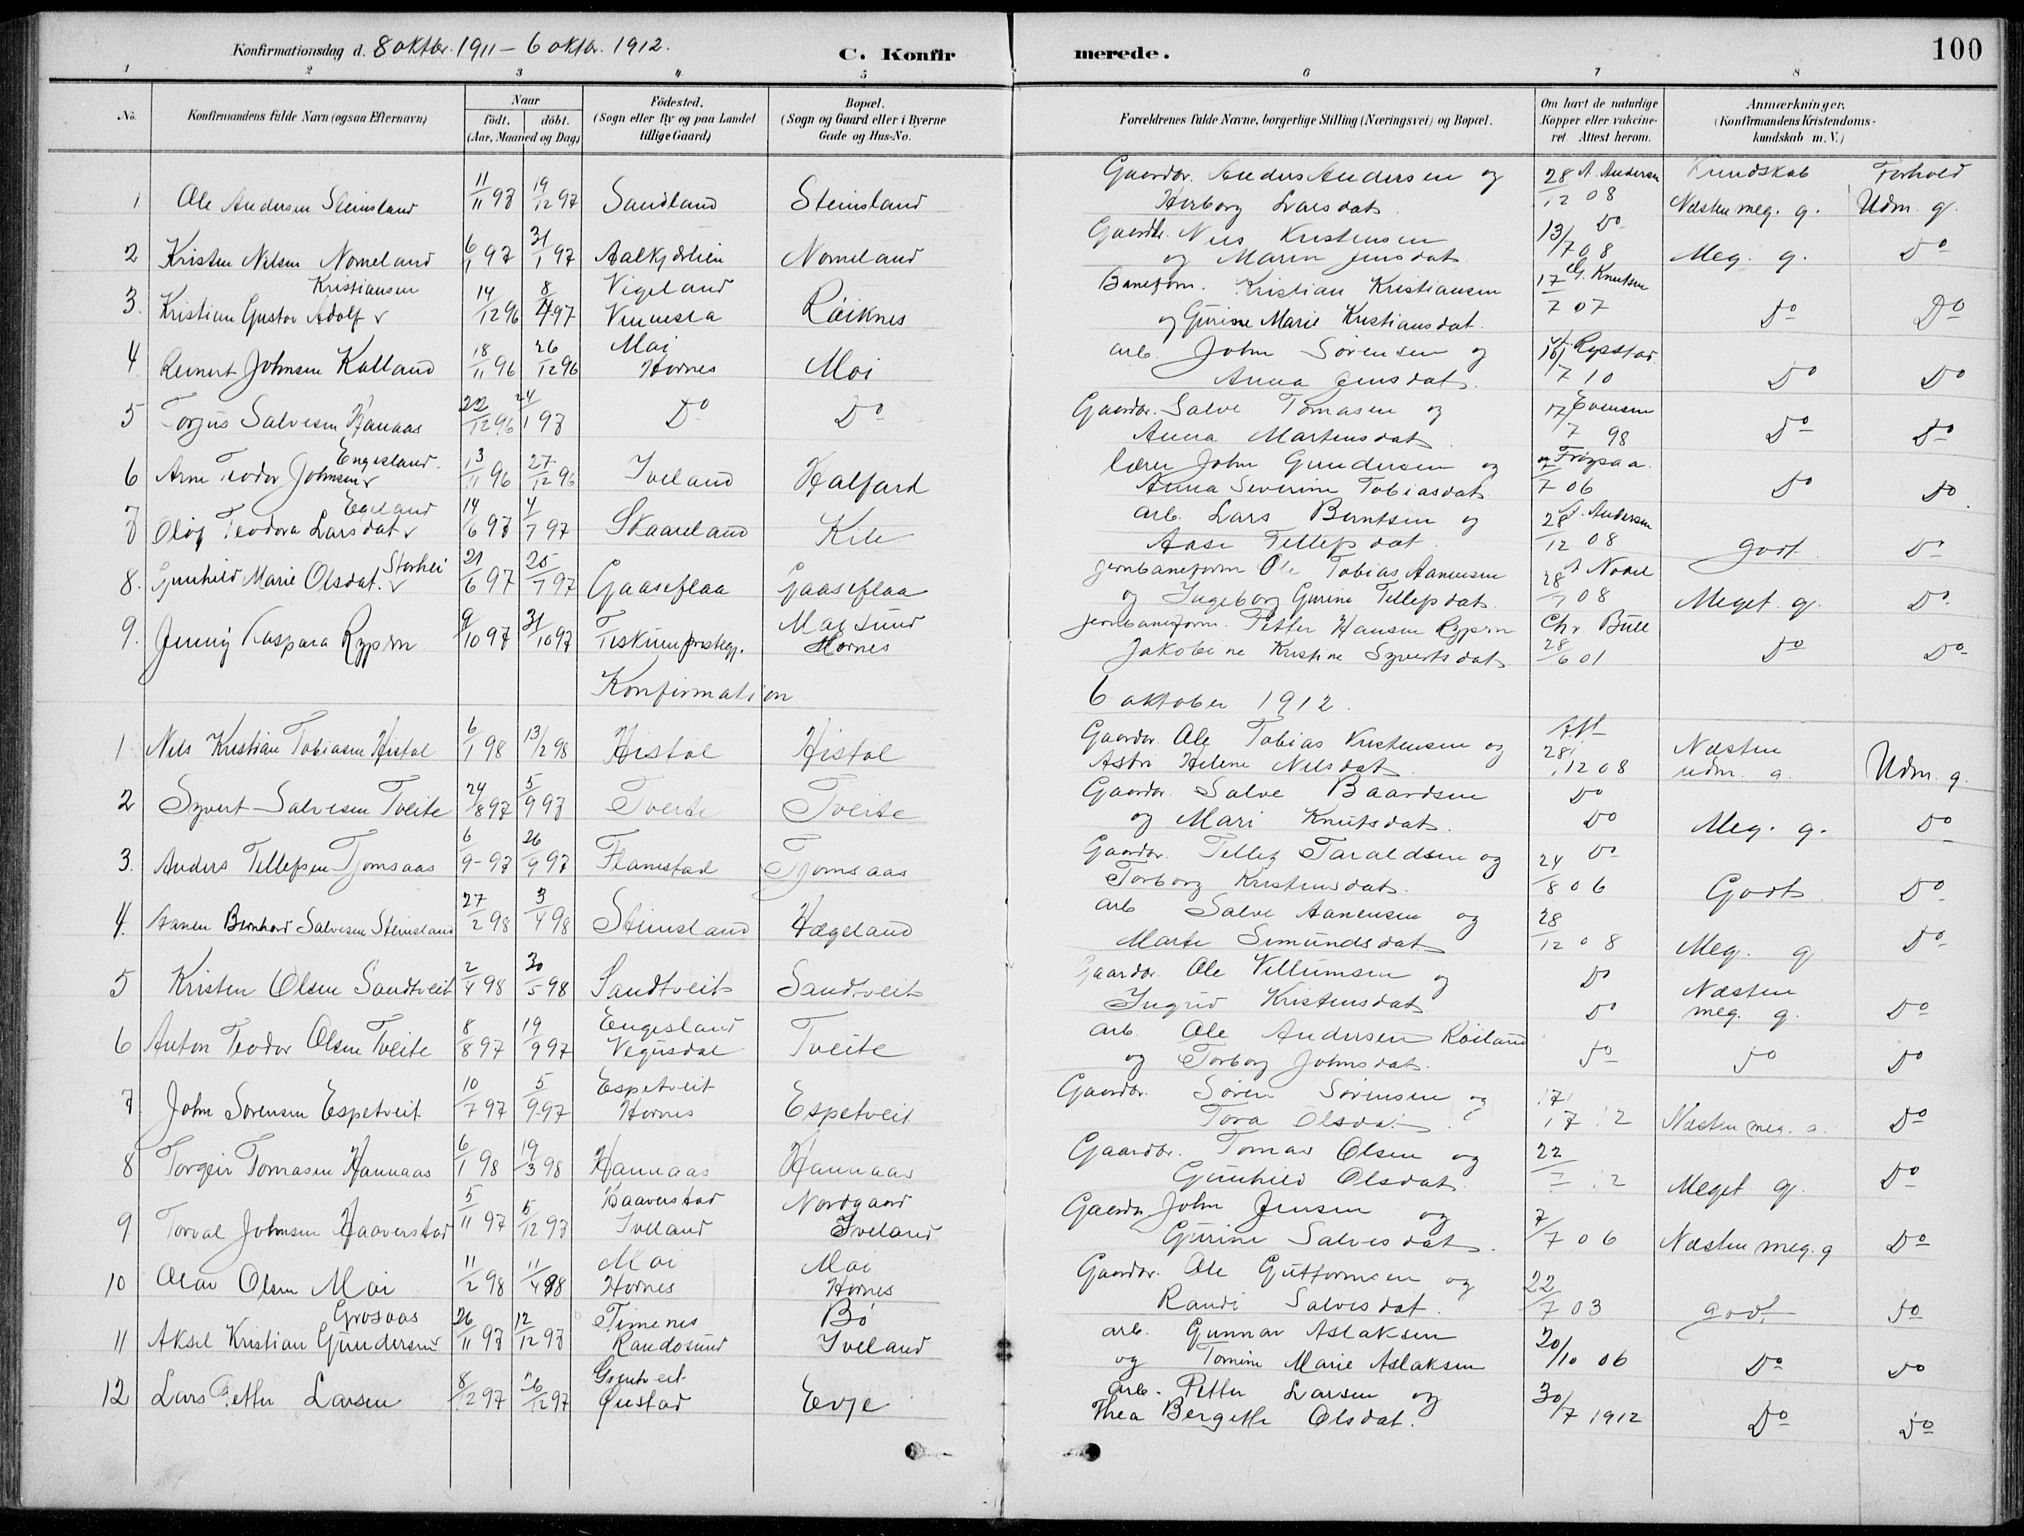 Konfirmationsdag d. 8 oktbr. 1911 – 6 oktbr. 1912.
C. Konfirmerede.
100
1 2 3 4 5 6 7 8
No. | Konfirmandens fulde Navn (ogsaa Efternavn) | Naar födt. döbt. (Aar, Maaned og Dag) | Födested. (Sogn eller By og paa Landet tillige Gaard) | Bopæl. (Sogn og Gaard eller i Byerne Gade og Hus-No. | Forældrenes fulde Navne, borgerlige Stilling (Næringsvei) og Bopæl. | Om havt de naturlige Kopper eller vakcineret Attest herom. | Anmærkninger. (Konfirmandens Kristendomskundskab m. V.)
Kundskab Forhold
1 Ole Andersen Steinsland 11/11 97 19/12 97 Sandland Steinsland Gaardbr. Anders Andersen og Herborg Larsdat. 28/12 08 A. Andersen Næsten meg. g. Udm. g.
2 Kristen Nilsen Nomeland 6/1 97 31/1 97 Aalkjærlien Nomeland Gaardbr. Nils Kristensen og Maren Jensdat. 13/7 08 Do Meg. g. Do
3. Kristian Gustav Adolf Kristiansen 14/12 96 8/4 97 Vigeland Vennesla Röiknes Baneform. Kristian Kristiansen og Gurine Marie Kristiansdat. 17/7 07 G. Knutsen Do Do
4. Reinert Johnsen Kalland 18/11 96 26/12 96 Moi Hornes Moi arb. John Sörensen og Anna Jensdat. 7 10 Rysstad Do Do
5 Torjus Salvesen Hanaas 22/12 96 24/1 97 Do Do Gaardbr. Salve Tomasen og Anna Martensdat. 17/7 98 Evensen Do Do
6 Arne Teodor Johnsen Engesland 13/11 96 27/12 96 Iveland Kalfard lærer John Gundersen og Anna Severine Tobiasdat. 7 06 Fröysaa Do Do
7 Oluf Teodora Larsdat. Egeland 14/6 97 4/7 97 Skaareland Kile arb. Lars Berntsen og Aase Tellefsdat. 28/12 08 A. Andersen godt Do
8. Gunhild Marie Olsdat. Storhei 21/6 97 25/7 97 Gaaseflaa Gaaseflaa jernbaneform Ole Tobias Aanensen og Ingeborg Gurine Tellefsdat. 28/7 08 A Nodel Meget g. Do
9. Jenny Kaspara Rypern 9/10 97 31/10 97 Moisund Hornes jernbaneform. Petter Hansen Rypern Jakobine Kristine Syvertsdat. Chr. Bull 28/6 01 Do Do
Konfirmation 6 oktober 1912.
1 Nils Kristian Tobiasen Histøl 6/1 98 13/2 98 Histøl Histøl Gaardbr. Ole Tobias Kristensen og Astri Helene Nilsdat. 28/12 08 Næsten udm. g. Udm. g.
2 Syvert Salvesen Tveite 24/8 97 5/9 97 Tveite Tveite Gaardbr. Salve Baardsen og Mari Knutsdat. Do Do Meg. g. Do
3. Anders Tellefsen Tjomsaas 6/9 97 26/9 97 Flamestad Tjomsaas Gaardbr. Tellef Taraldsen og Torborg Kristensdat. Do 24/8 06 Godt Do
4. Aanen Bernhard Salvesen Steinsland 27/2 98 3/4 98 Steinsland Hægeland arb Salve Aanensen og Marte Simundsdat. 28/12 08 Meg. g Do
5 Kristen Olsen Sandtveit 2/4 98 30/5 98 Sandtveit Sandtveit Gaardbr. Ole Villumsen og Ingrid Kristensdat. Do Do Næsten meg. g. Do
6 Anton Teodor Olsen Tveite 8/8 97 19/9 97 Engesland Vegusdal Tveite arb. Ole Andersen Röiland og Torborg Johnsdat. Do Do Do
7 John Sörensen Espetveit 10/7 97 5/9 97 Espetveit Hornes Espetveit Gaardbr. Sören Sörensen og Tora Olsdat. Næsten meg. g. Do
8 Torgeir Tomasen Hannaas 6/1 98 19/3 98 Hannaas Hannaas Gaardbr. Tomas Olsen og Gunhild Olsdat. Meget g. Do
9 Torval Johnsen Haaverstad 5/11 97 5/12 97 Haaverstad Iveland Nordgaard Iveland Gaardbr John Jensen og Gurine Salvesdat. 7/7 06 Næsten meg. g Do
10 Olav Olsen Moi 11/2 98 11/4 98 Moi Hornes Moi Hornes Gaardbr. Ole Guttormsen og Randi Salvesdat. 22/7 03 godt Do
11 Aksel Kristian Gundersen Grosaas 26/11 97 12/12 97 Timenes Randosund Bö Iveland arb. Gunnar Aslaksen og Tomine Marie Aslaksen 20/10 06 Do Do
12 Lars Petter Larsen 8/12 97 26/12 97 Evje arb. Petter Larsen og Thea Bergette Olsdat. 30/7 1912 Do Do